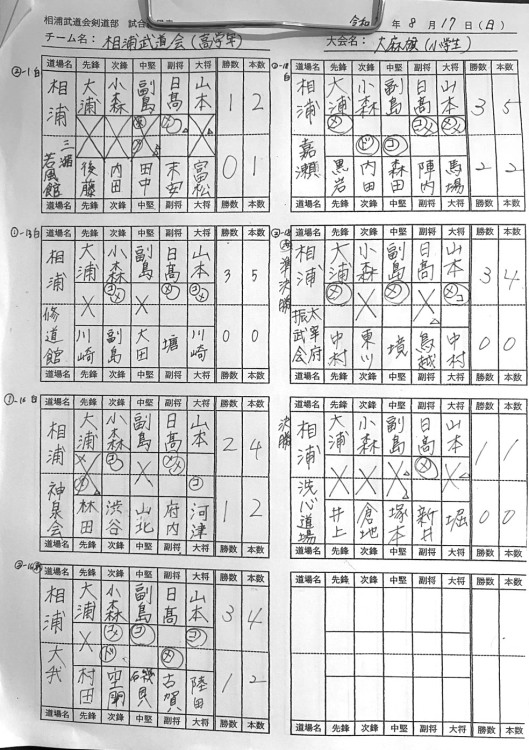 相浦武道会剣道部 試合
令和 年 8月 17日(日)
チーム名: 相浦武道会(高学年) 大会名: 大麻旗(小学生)
②-1台
道場名 先鋒 次鋒 中堅 副将 大将 勝数 本数
相浦 大浦 小森 副島 日髙 山本 1 2
メ
三瀦若風館 後藤 内田 田中 末安 富松 0 1
道場名 先鋒 次鋒 中堅 副将 大将 勝数 本数
①-13台
道場名 先鋒 次鋒 中堅 副将 大将 勝数 本数
相浦 大浦 小森 副島 日髙 山本 3 5
コメ メ コメ
修道館 川崎 副島 大田 塘 川崎 0 0
道場名 先鋒 次鋒 中堅 副将 大将 勝数 本数
①-16台
道場名 先鋒 次鋒 中堅 副将 大将 勝数 本数
相浦 大浦 小森 副島 日髙 山本 2 4
コ メメ
コ
神泉会 林田 渋谷 山北 府内 河津 1 2
道場名 先鋒 次鋒 中堅 副将 大将 勝数 本数
道場名 先鋒 次鋒 中堅 副将 大将 勝数 本数
相浦 大浦 小森 副島 日髙 山本 3 4
コメ コ コ
ド メ
大我 村田 空閑 磯貝 古賀 陸田 1 2
道場名 先鋒 次鋒 中堅 副将 大将 勝数 本数
道場名 先鋒 次鋒 中堅 副将 大将 勝数 本数
相浦 大浦 小森 副島 日髙 山本 3 5
メ コメ メコ
ド コ
嘉瀬 黒岩 内田 森田 陣内 馬場 2 2
道場名 先鋒 次鋒 中堅 副将 大将 勝数 本数
準決勝
道場名 先鋒 次鋒 中堅 副将 大将 勝数 本数
相浦 大浦 小森 副島 日髙 山本 3 4
メ メ メコ
太宰府振武会 中村 東川 境 鳥越 中村 0 0
道場名 先鋒 次鋒 中堅 副将 大将 勝数 本数
決勝
道場名 先鋒 次鋒 中堅 副将 大将 勝数 本数
相浦 大浦 小森 副島 日髙 山本 1 1
メ
洗心道場 井上 倉地 塚本 新井 堀 0 0
道場名 先鋒 次鋒 中堅 副将 大将 勝数 本数
道場名 先鋒 次鋒 中堅 副将 大将 勝数 本数
道場名 先鋒 次鋒 中堅 副将 大将 勝数 本数